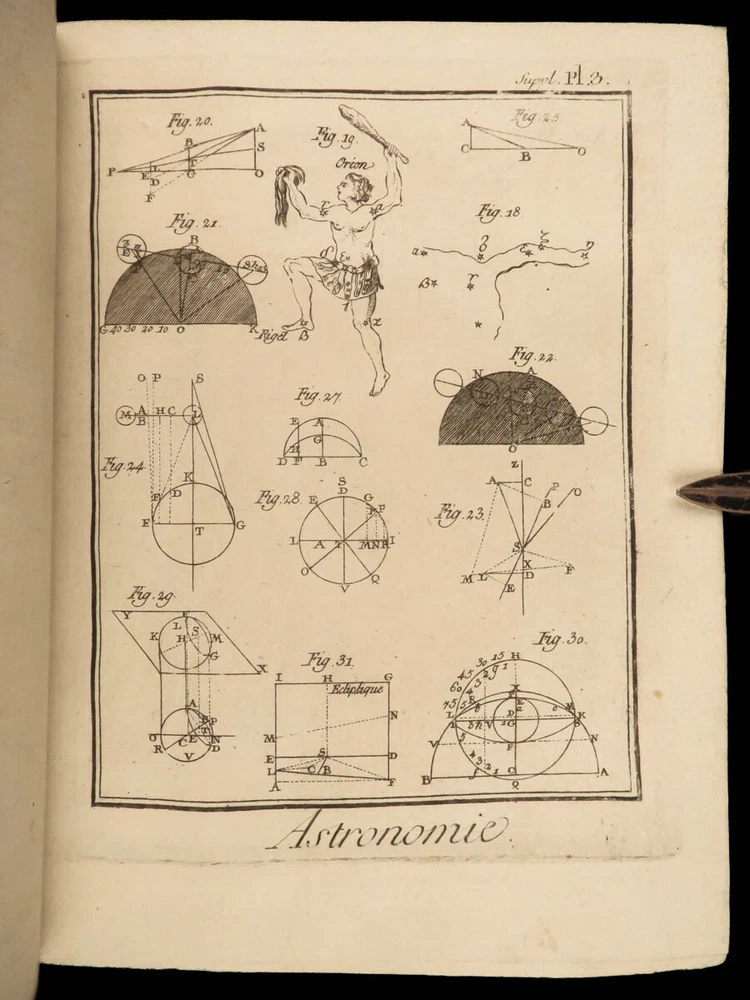 Suppl. Pl 3.
Fig. 20.
A
B
S
P
L
T
E
G
O
D
F
Fig. 19.
Orion
r
a
δ
ε
Rigel
β
x
Fig. 25
A
C
B
O
Fig. 21.
B
E
G 40 30 20 10 O
K
Fig. 18
a
δ
ε
ζ
η
β
r
Fig. 22.
N
A
O
O P
S
M
A
B
H C
L
Fig. 24
K
F
D
F
T
G
Fig. 27.
E
A
G
H
D F B C
Fig. 28
S
D
E
G
P
L
A
T
M N R I
O
Q
V
Z
A
C
P
O
B
Fig. 23.
S
X
M L
D
F
E
Fig. 29.
Y
F
L
S
K
H
M
G
X
A
P
T
O
C E N D
R
V
Fig. 31
I
H
G
Ecliptique
N
M
S
E
D
L
C B
A
F
Fig. 30.
H
15
30
45
60
75
X
M
L
K
V
N
F
C
B
A
Q
Astronomie.